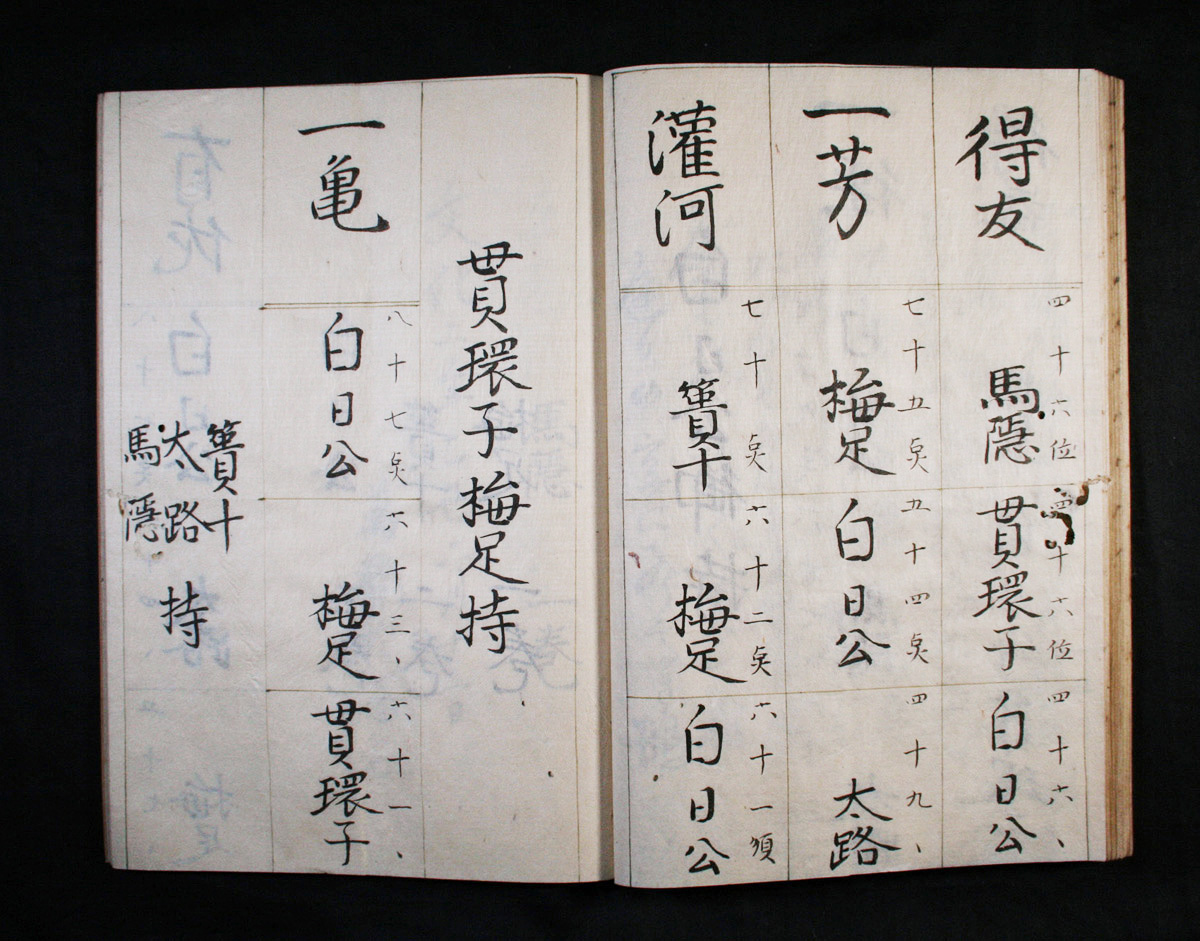 得友
四十六位
馬隠
四十六位
貫環子
四十六、
白日公
一芳
七十五点
梅足
五十四点
白日公
四十九、
太路
灌河
七十点
簣十
六十二点
梅足
六十一須
白日公
貫環子梅足持
一亀
八十七点
白日公
六十三、
梅足
六十一、
貫環子
簣十
太路
馬隠
持